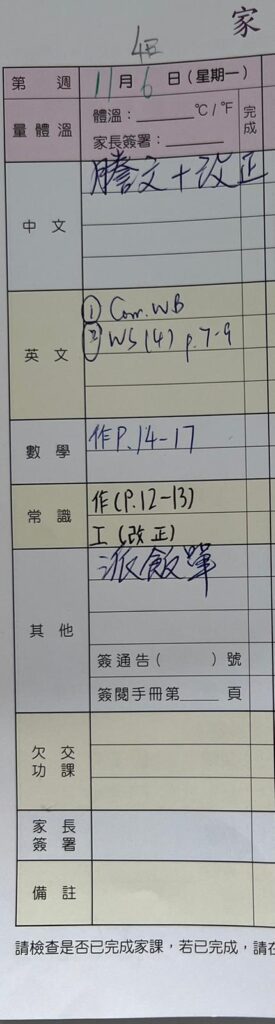 家
4E
第 週 11月6日(星期一)
量體溫 體溫：______ °C / °F 完成
家長簽署：______
中文 謄文+改正
英文 ① Com. WB
② WS(4) p.7-9
數學 作P.14-17
常識 作(P.12-13)
工(改正)
其他 派飯單
簽通告( )號
簽閱手冊第____頁
欠交功課
家長簽署
備註
請檢查是否已完成家課，若已完成，請在